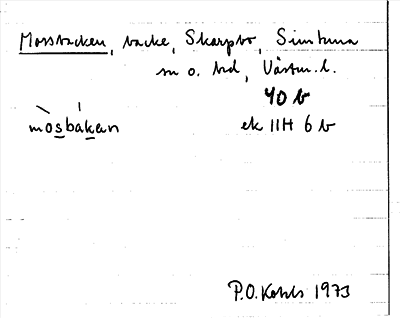 Mossbacken, backe, Skarpbo, Simtuna
sn o. hd, Västm. l.
40 b
mosbakan
ek 11H 6 b
P.O. 1973